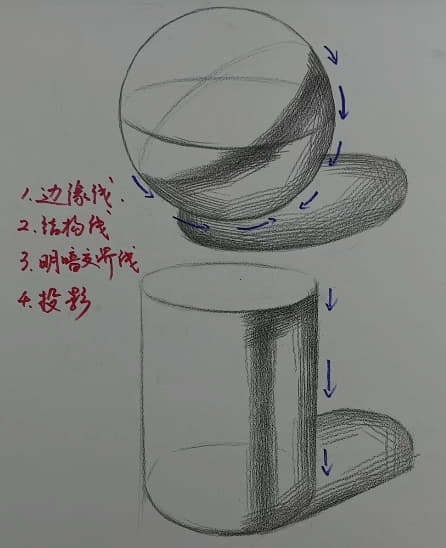 1.边缘线.
2.结构线
3.明暗交界线
4.投影